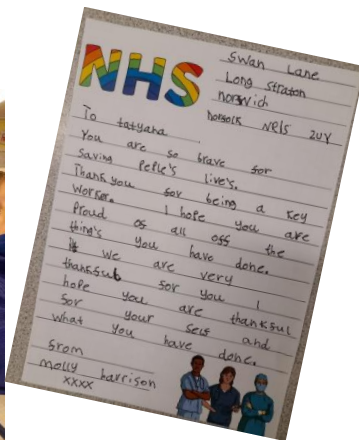 NHS
Swan Lane
Long Straton
norwich
norsolk NR15 2UY
To tatyana
You are so brave for
Saving Peple's live's.
Thank you for being a key
worker. I hope you are
Proud of all off the
thing's you have done.
We are very
thanksul for you I
hope you are thanksul
for your self and
what you have done.
from
molly harrison
xxxx